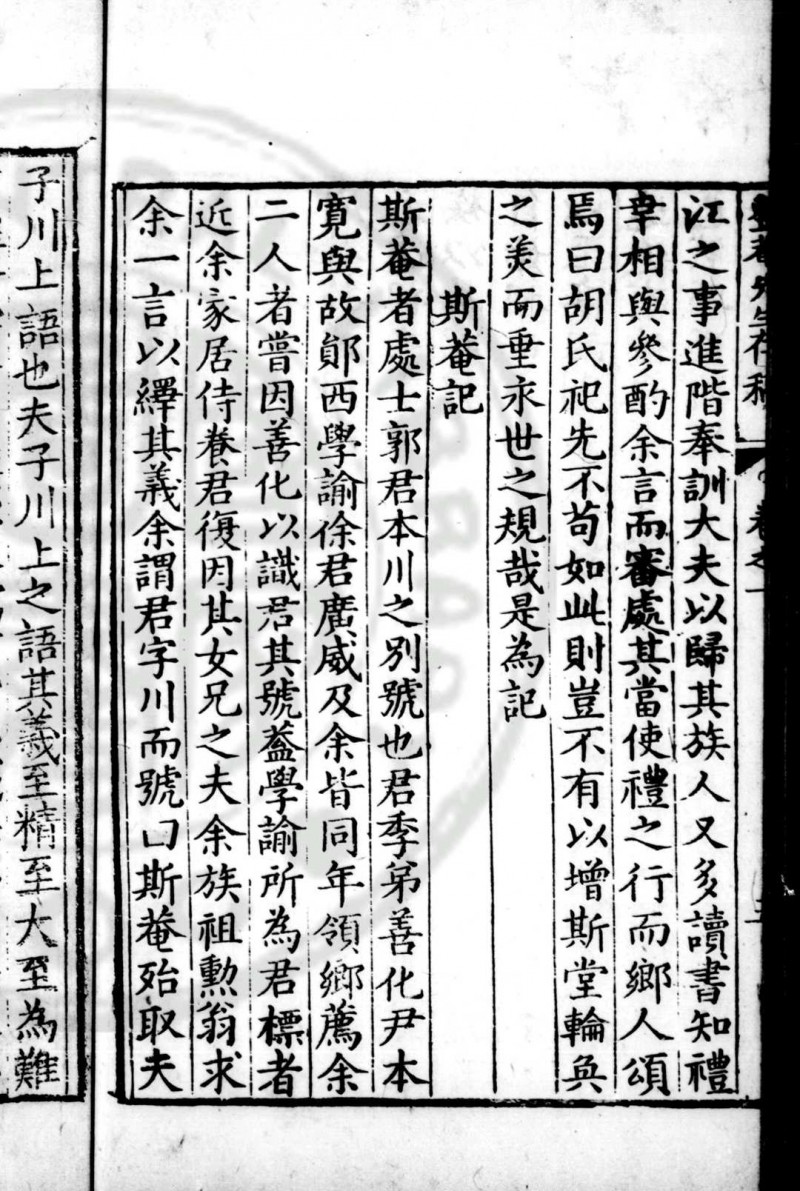 先生存稿 卷之一
江之事進階奉訓大夫以歸其族人又多讀書知禮
幸相與參酌余言而審處其當使禮之行而鄉人頌
焉曰胡氏祀先不苟如此則豈不有以增斯堂輪奐
之美而垂永世之規哉是為記
斯菴記
斯菴者處士郭君本川之别號也君季弟善化尹本
寬與故鄖西學諭徐君廣威及余皆同年領鄉薦余
二人者嘗因善化以識君其號葢學諭所為君標者
近余家居侍養君復因其女兄之夫余族祖勲翁求
余一言以繹其義余謂君字川而號曰斯菴殆取夫
子川上語也夫子川上之語其義至精至大至為難